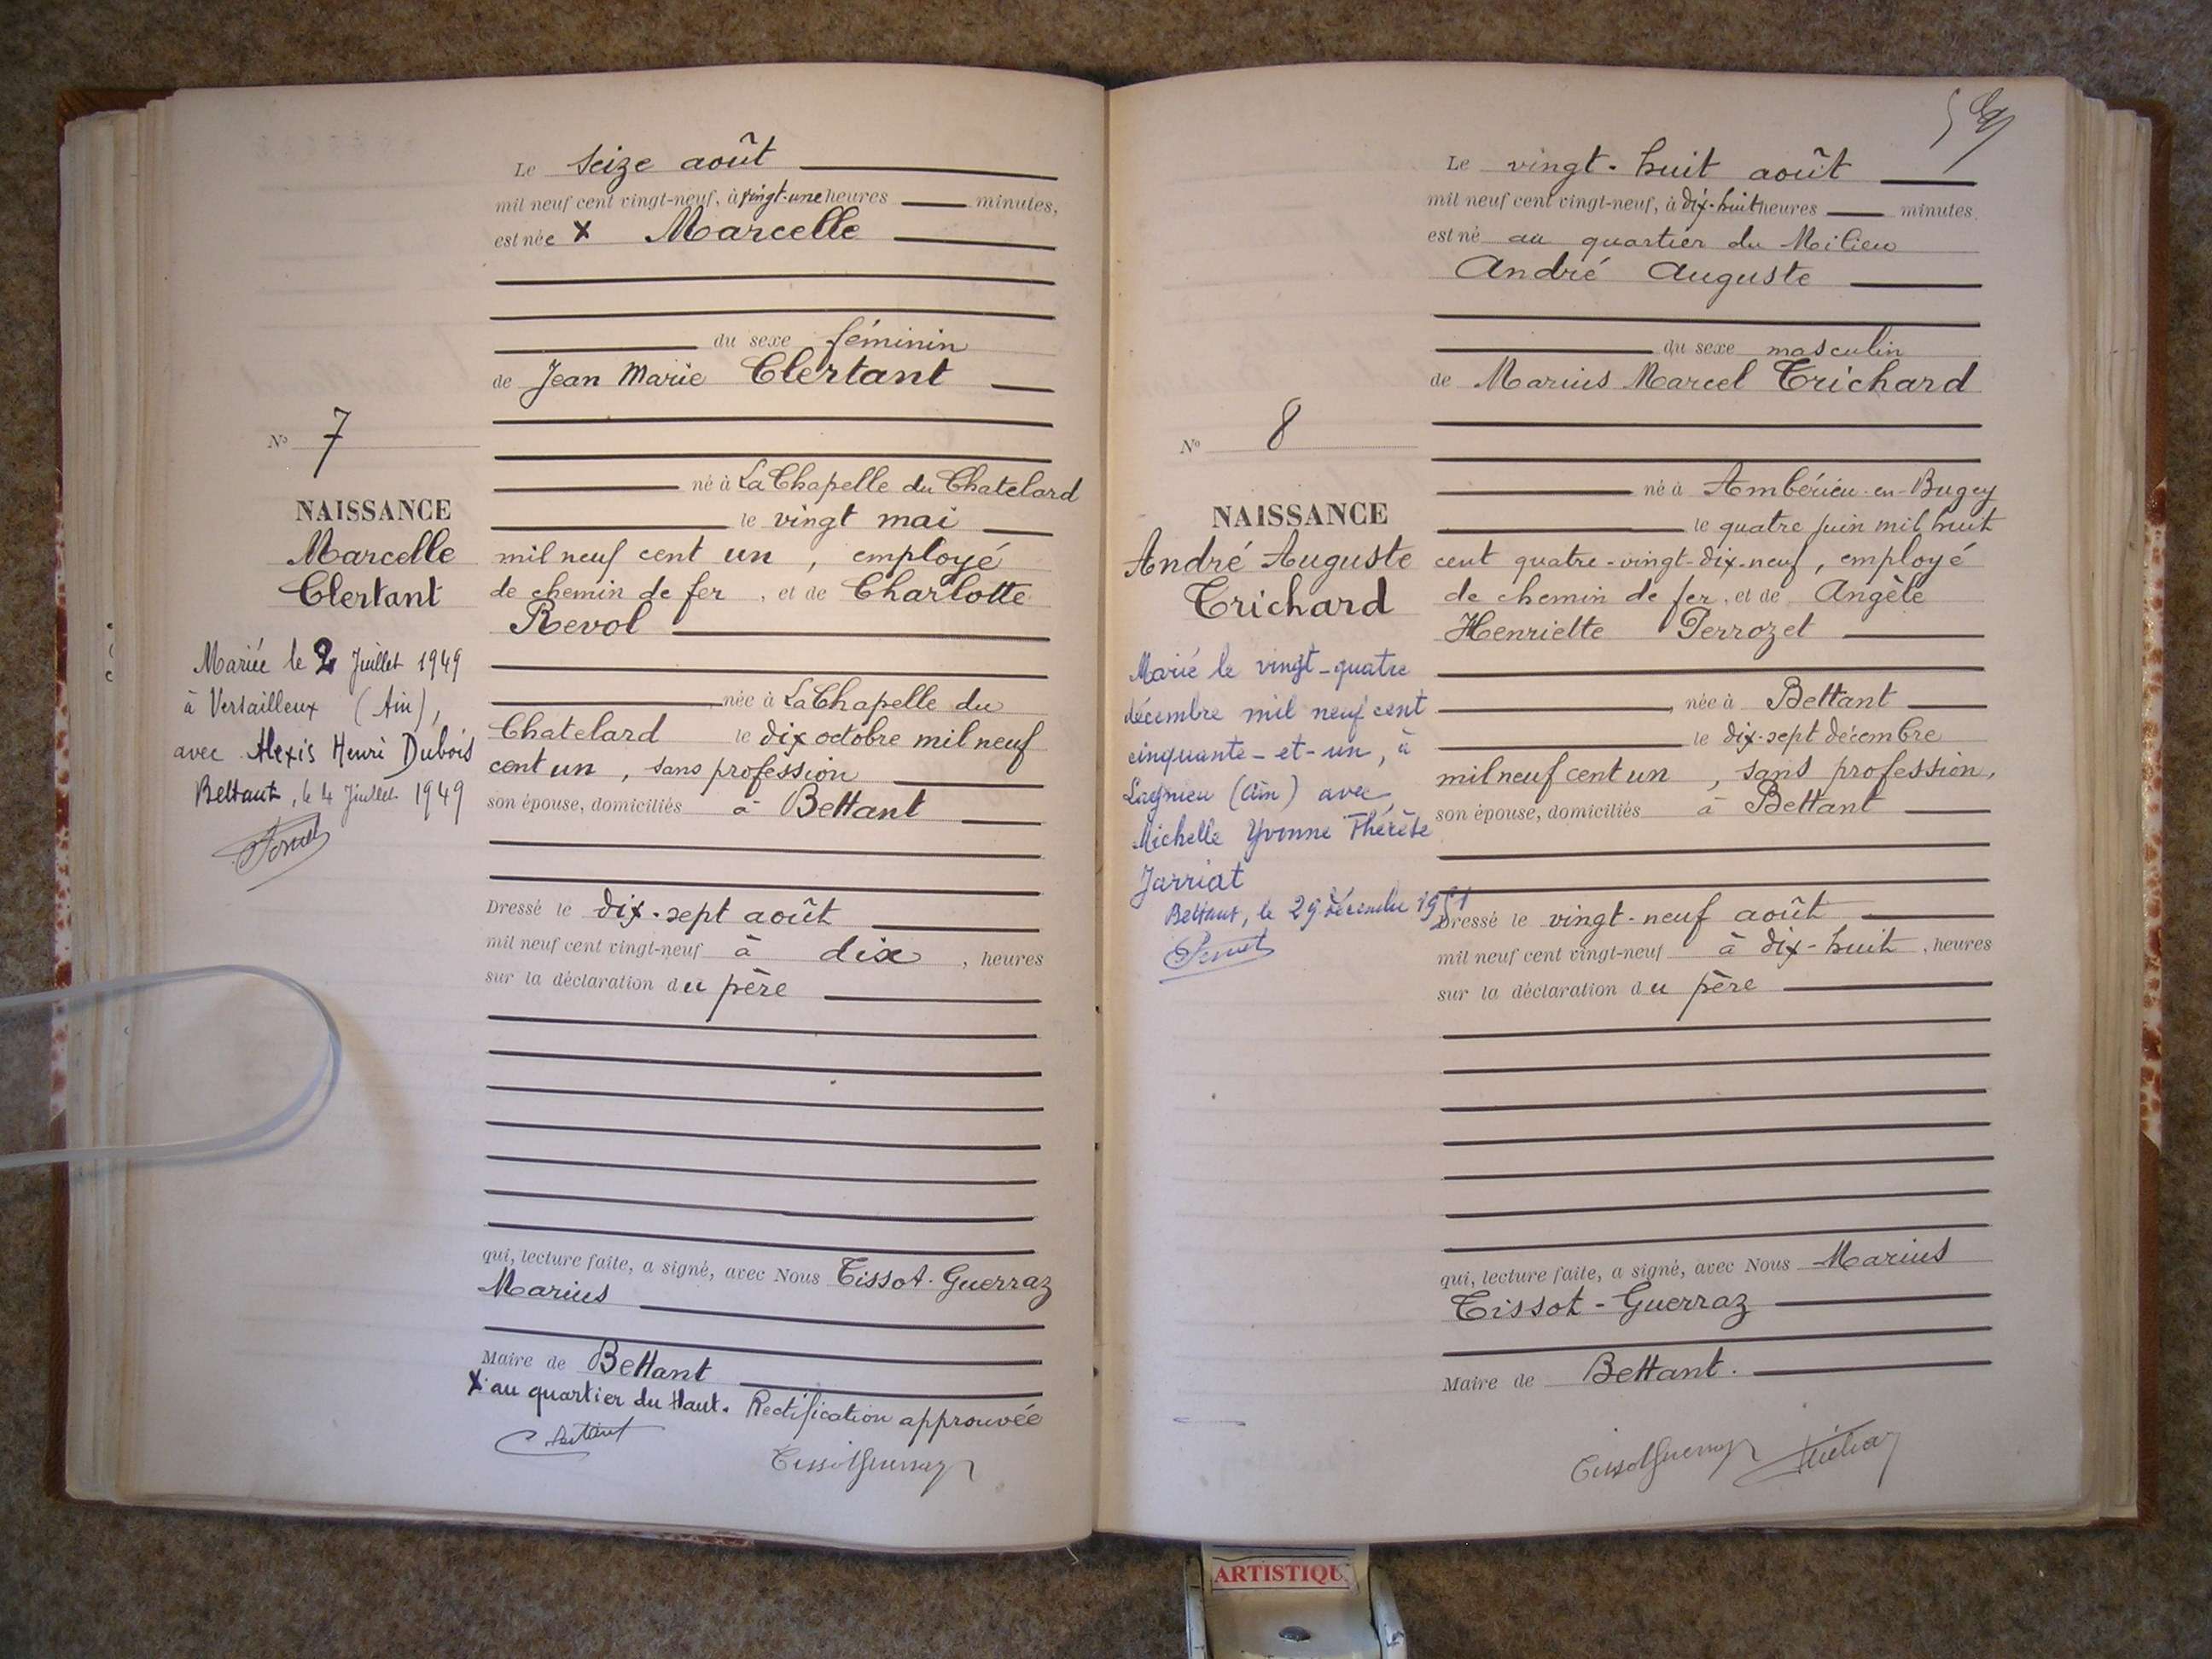 Le seize août
mil neuf cent vingt-neuf, à vingt-une heures minutes,
est née X Marcelle
du sexe féminin
de Jean Marie Clertant
N° 7
né à La Chapelle du Chatelard
NAISSANCE
le vingt mai
Marcelle
mil neuf cent un, employé
Clertant
de chemin de fer, et de Charlotte
Revol
Mariée le 2 Juillet 1949
à Versailleux (Ain),
avec Alexis Henri Dubois
Bettant, le 4 Juillet 1949
née à La Chapelle du
Chatelard le dix octobre mil neuf
cent un, sans profession
son épouse, domiciliés à Bettant
Dressé le dix-sept août
mil neuf cent vingt-neuf à dix, heures
sur la déclaration du père
qui, lecture faite, a signé, avec Nous Tissot-Guerraz
Marius
Maire de Bettant
X au quartier du Haut. Rectification approuvée
Clertant
TissotGuerraz
Le vingt-huit août
mil neuf cent vingt-neuf, à dix-huit heures minutes
est né au quartier du Milieu
André Auguste
du sexe masculin
de Marius Marcel Trichard
N° 8
né à Ambérieu-en-Bugey
NAISSANCE
le quatre juin mil huit
André Auguste
cent quatre-vingt-dix-neuf, employé
Trichard
de chemin de fer, et de Angèle
Henriette Perrozet
Marié le vingt-quatre
décembre mil neuf cent
cinquante-et-un, à
Lagnieu (Ain) avec
Michelle Yvonne Thérèse
Jarriat
Bettant, le 29 décembre 1951
née à Bettant
le dix-sept décembre
mil neuf cent un, sans profession,
son épouse, domiciliés à Bettant
Dressé le vingt-neuf août
mil neuf cent vingt-neuf à dix-huit, heures
sur la déclaration du père
qui, lecture faite, a signé, avec Nous Marius
Tissot-Guerraz
Maire de Bettant.
TissotGuerraz Trichard
ARTISTIQU